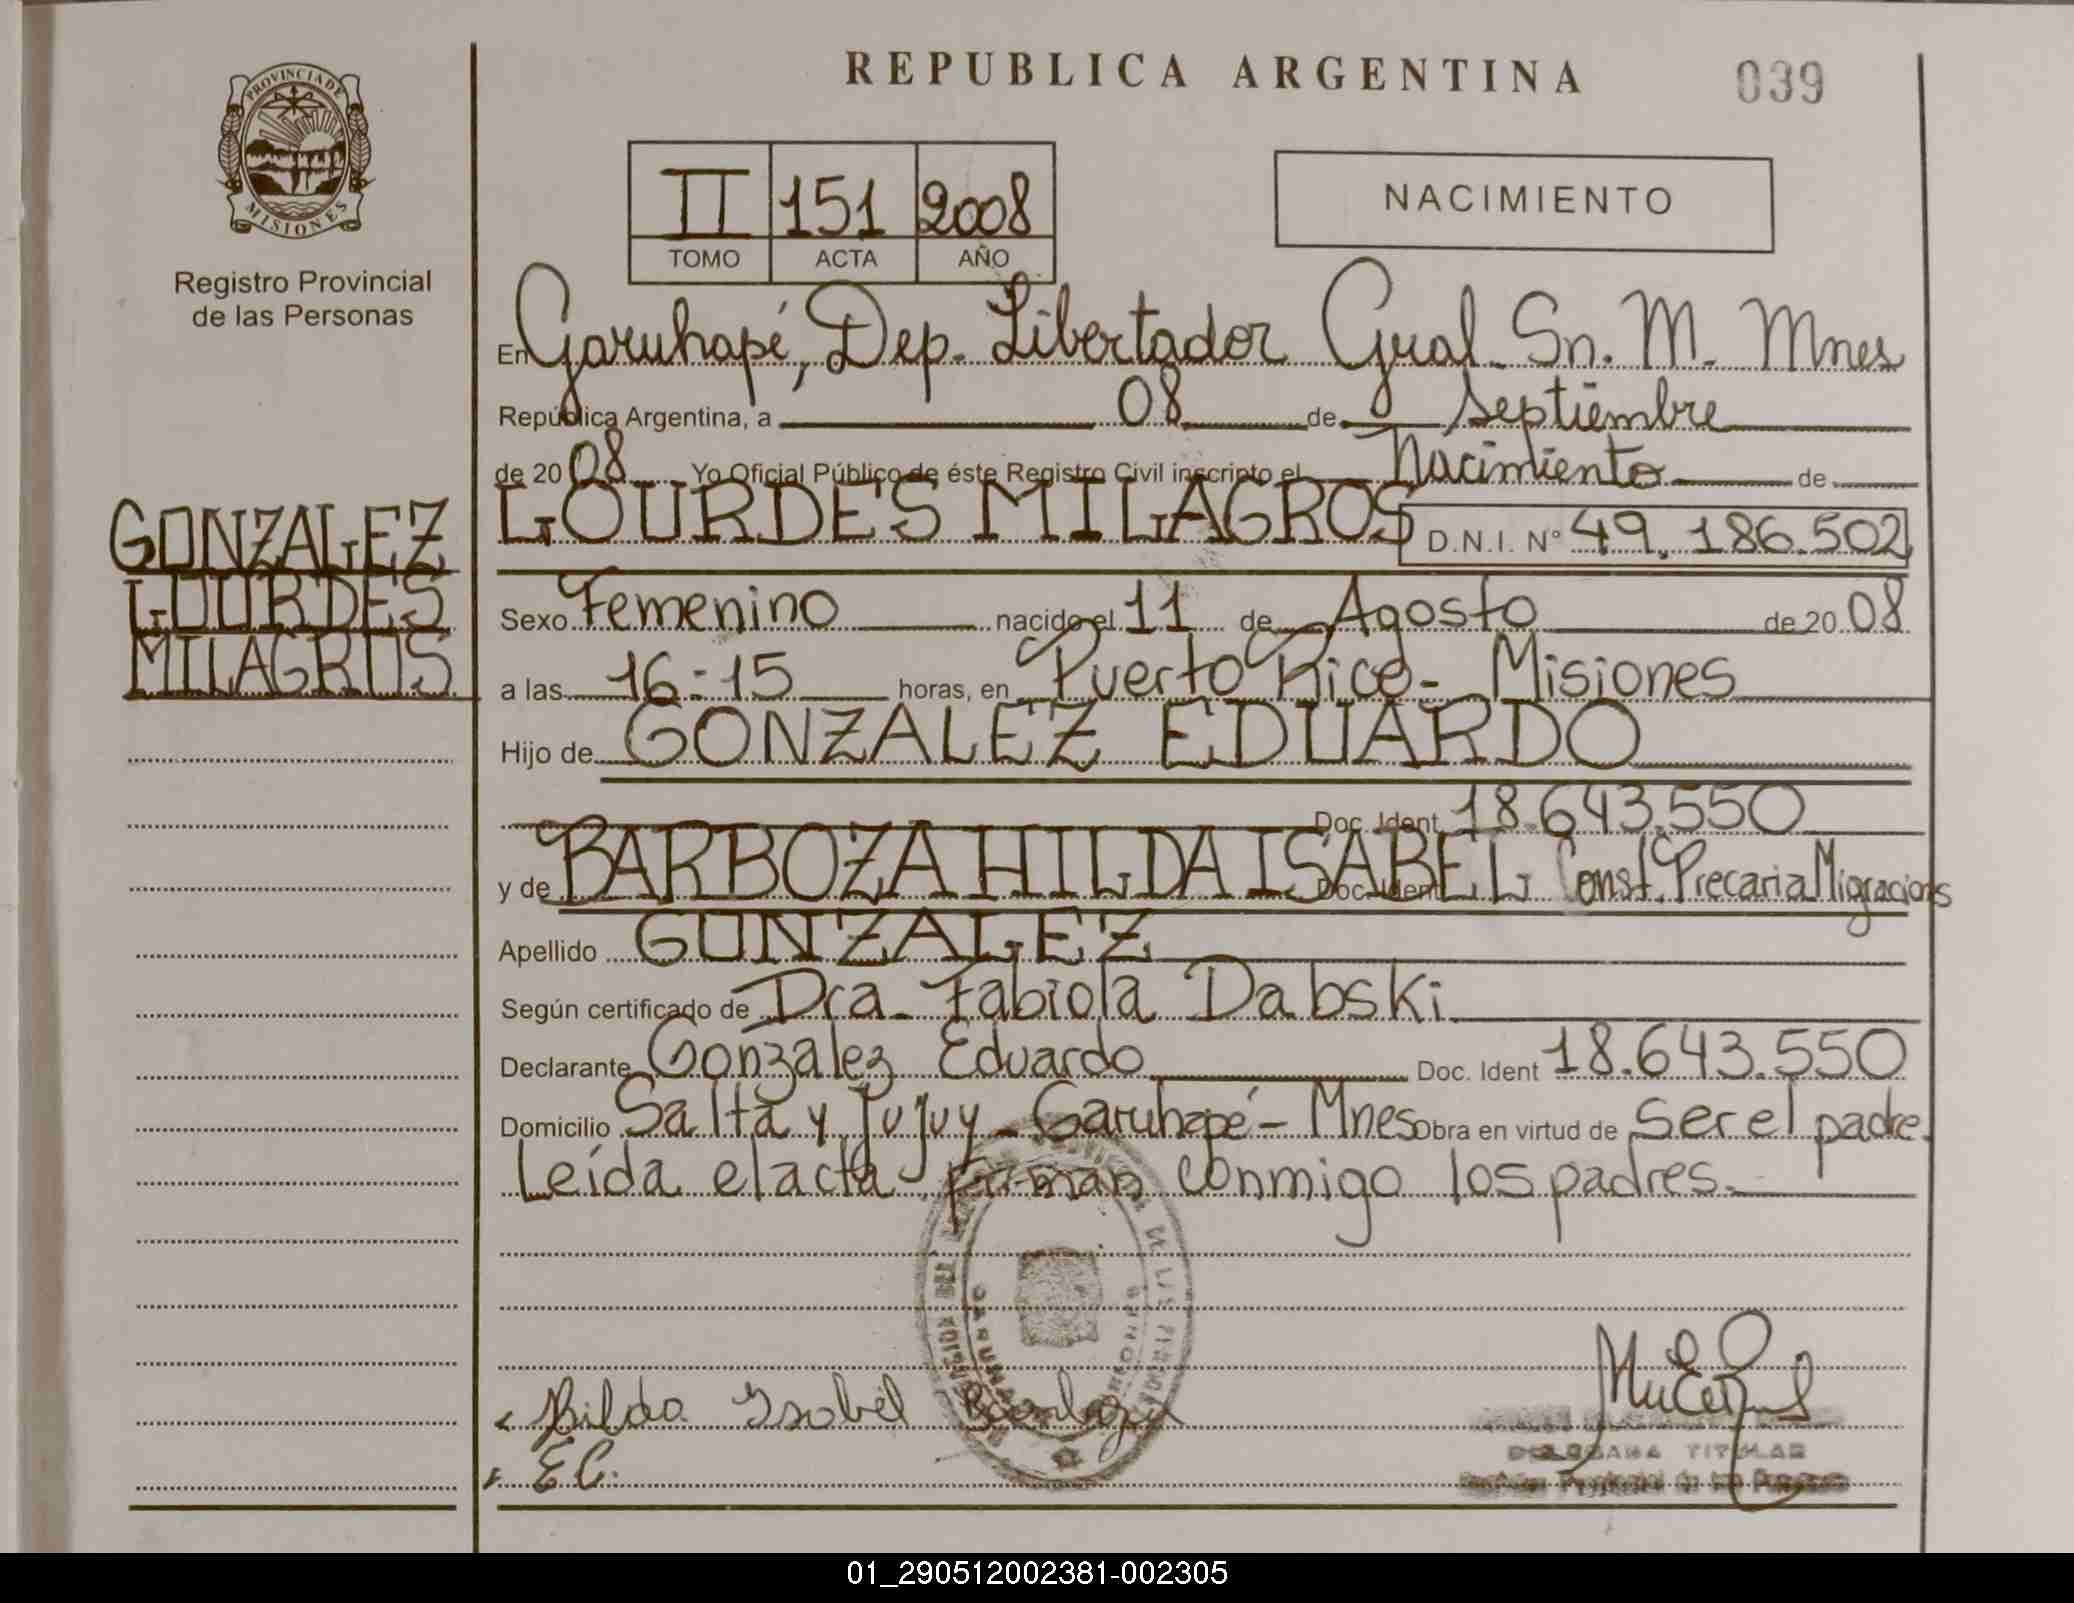 REPUBLICA ARGENTINA
039
PROVINCIA DE
MISIONES
Registro Provincial
de las Personas
II 151 2008
TOMO ACTA AÑO
NACIMIENTO
En Garuhapé, Dep. Libertador Gral. Sn. M. Mnes
República Argentina, a 08 de Septiembre
de 2008 Yo Oficial Público de éste Registro Civil inscripto el Nacimiento de
LOURDES MILAGROS D.N.I. N° 49.186.502
GONZALEZ
LOURDES
MILAGROS
Sexo Femenino nacido el 11 de Agosto de 2008
a las 16-15 horas, en Puerto Rico - Misiones
Hijo de GONZALEZ EDUARDO
Doc. Ident. 18.643.550
y de BARBOZA HILDA ISABEL Doc. Ident Const. Precaria Migracions
Apellido GONZALEZ
Según certificado de Dra. Fabiola Dabski
Declarante Gonzalez Eduardo Doc. Ident 18.643.550
Domicilio Salta y Jujuy - Garuhapé - Mnes Obra en virtud de ser el padre.
Leída el acta firman conmigo los padres.
Hilda Isabel Barboza
E C.
TITULAR
01_290512002381-002305